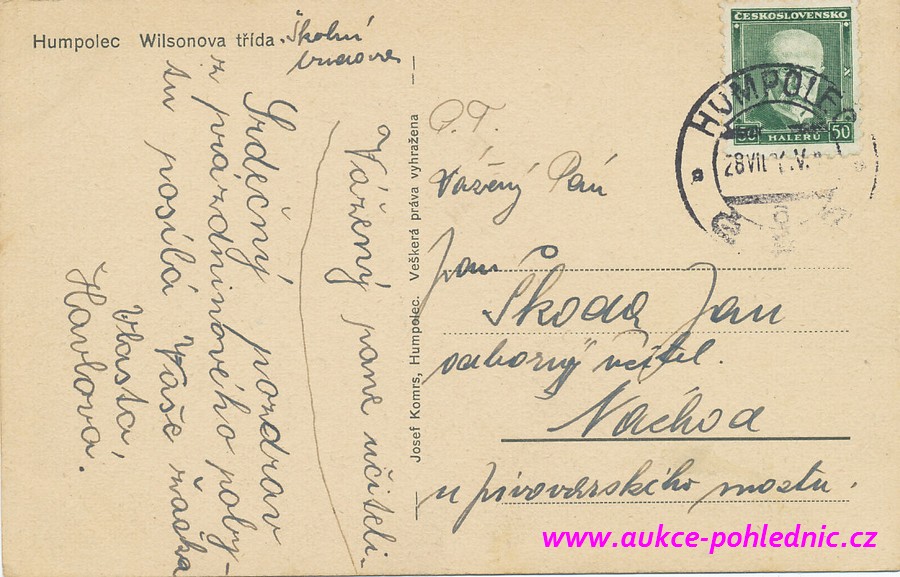 Humpolec Wilsonova třída. Školní
budova
Vážený pane učiteli.
Srdečný pozdrav
z prázdninového poby-
tu posílá Vaše žačka
Vlasta
Havlová.
Josef Komrs, Humpolec. Veškerá práva vyhražena
ČESKOSLOVENSKO
50 HALÉŘŮ 50
HUMPOLEC
28 VII
P.T.
Vážený Pán
pan
Škoda Jan
odborný učitel.
Náchod
u pivovarského mostu.
www.aukce-pohlednic.cz